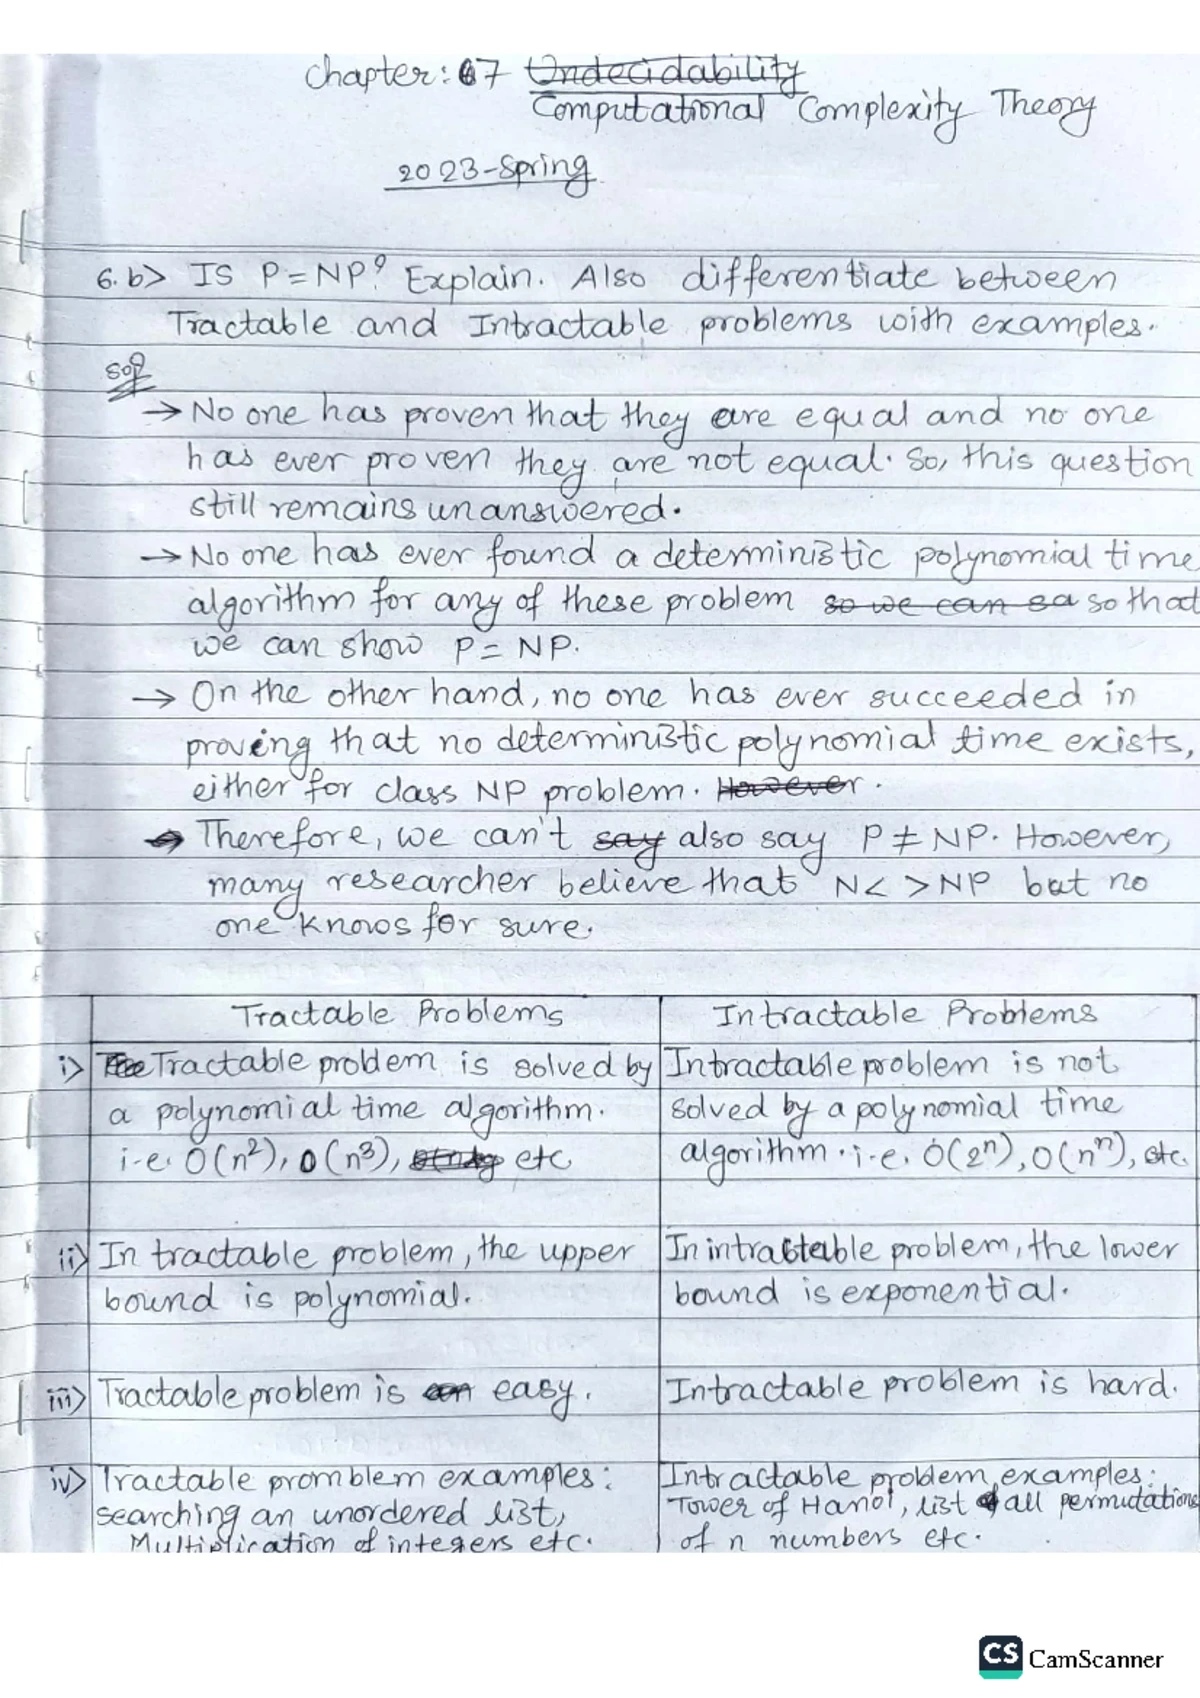 Chapter: 67 Undecidability
Computational Complexity Theory
2023-Spring
6.b> IS P=NP? Explain. Also differentiate between
Tractable and Intractable problems with examples.
Sol
→ No one has proven that they are equal and no one
has ever proven they are not equal. So, this question
still remains unanswered.
→ No one has ever found a deterministic polynomial time
algorithm for any of these problem so we can sa so that
we can show P = NP.
→ On the other hand, no one has ever succeeded in
proving that no deterministic polynomial time exists,
either for class NP problem. However.
→ Therefore, we can't say also say P ≠ NP. However,
many researcher believe that N< >NP but no
one knows for sure.
Tractable Problems Intractable Problems
i> The Tractable problem is solved by
a polynomial time algorithm.
i.e. O(n²), O(n³), etc
Intractable problem is not
solved by a polynomial time
algorithm. i.e. O(2ⁿ), O(nⁿ), etc.
ii> In tractable problem, the upper
bound is polynomial.
In intractable problem, the lower
bound is exponential.
iii> Tractable problem is easy.
Intractable problem is hard.
iv> Tractable promblem examples:
searching an unordered list,
Multiplication of integers etc.
Intractable problem examples:
Tower of Hanoi, list of all permutations
of n numbers etc.
CS CamScanner